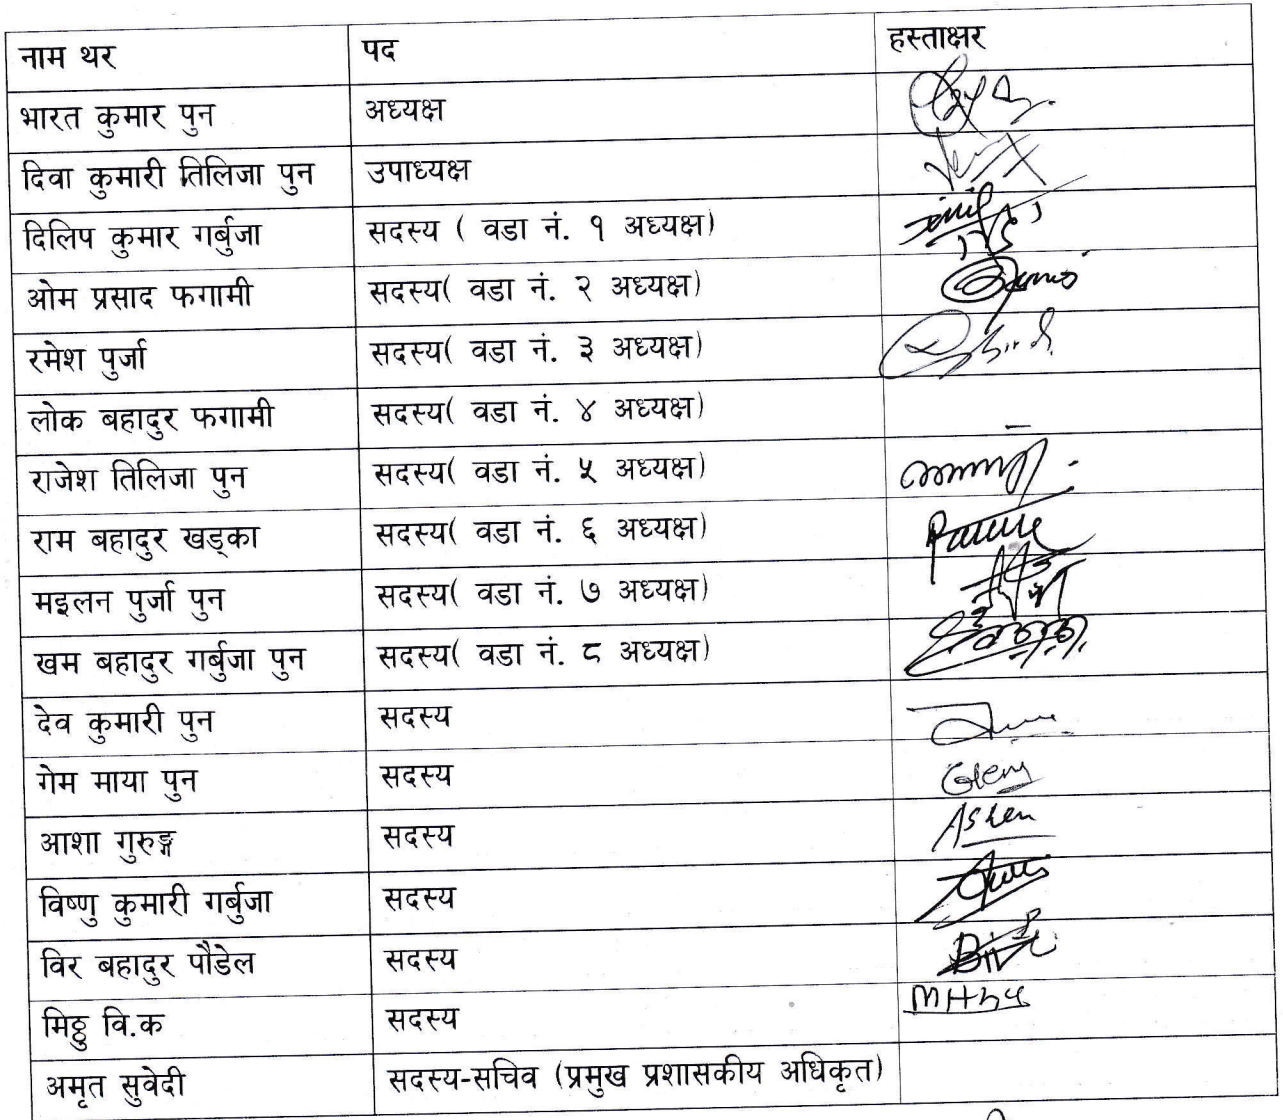 नाम थर पद हस्ताक्षर
भारत कुमार पुन अध्यक्ष
दिवा कुमारी तिलिजा पुन उपाध्यक्ष
दिलिप कुमार गर्बुजा सदस्य ( वडा नं. १ अध्यक्ष)
ओम प्रसाद फगामी सदस्य( वडा नं. २ अध्यक्ष)
रमेश पुर्जा सदस्य( वडा नं. ३ अध्यक्ष)
लोक बहादुर फगामी सदस्य( वडा नं. ४ अध्यक्ष)
राजेश तिलिजा पुन सदस्य( वडा नं. ५ अध्यक्ष)
राम बहादुर खड्का सदस्य( वडा नं. ६ अध्यक्ष)
मइलन पुर्जा पुन सदस्य( वडा नं. ७ अध्यक्ष)
खम बहादुर गर्बुजा पुन सदस्य( वडा नं. ८ अध्यक्ष)
देव कुमारी पुन सदस्य
गेम माया पुन सदस्य
आशा गुरुङ्ग सदस्य
विष्णु कुमारी गर्बुजा सदस्य
विर बहादुर पौडेल सदस्य
मिठ्ठु वि.क सदस्य
अमृत सुवेदी सदस्य-सचिव (प्रमुख प्रशासकीय अधिकृत)